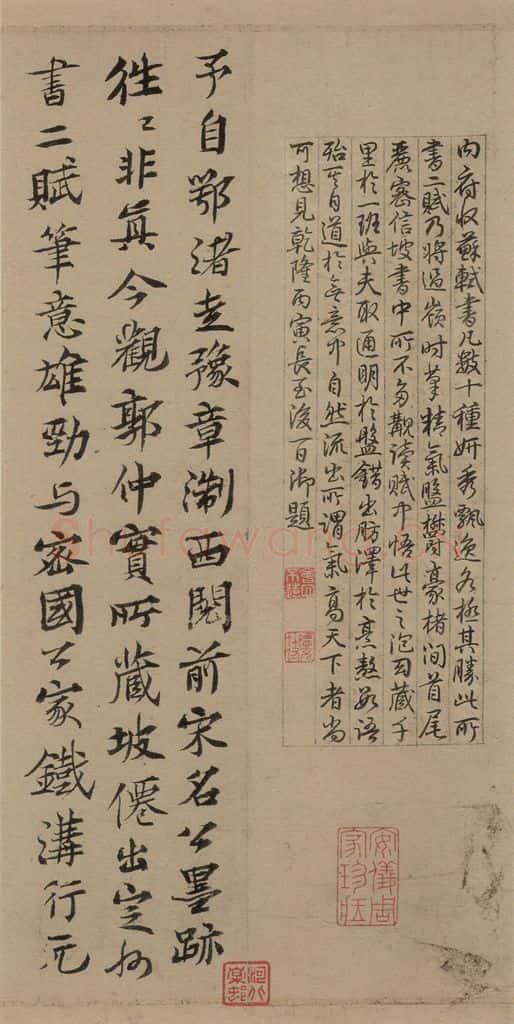 內府收蘇軾書凡數十種妍秀飄逸各極其勝此所
書二賦乃將過嶺時筆精氣盤鬱豪楮間首尾
麗密信坡書中所不多覯讀賦中悟此世之泡幻藏千
里於一班與夫取通明於盤錯出肪澤於烹熬數語
殆其自道於無意中自然流出所謂氣高天下者尚
可想見乾隆丙寅長至後一日御題
安儀周家珍藏
予自鄂渚走豫章淛西閱前宋名公墨跡
往〻非真今觀郭仲實所藏坡僊出定州
書二賦筆意雄勁与密國公家鐵溝行元
河北棠邨